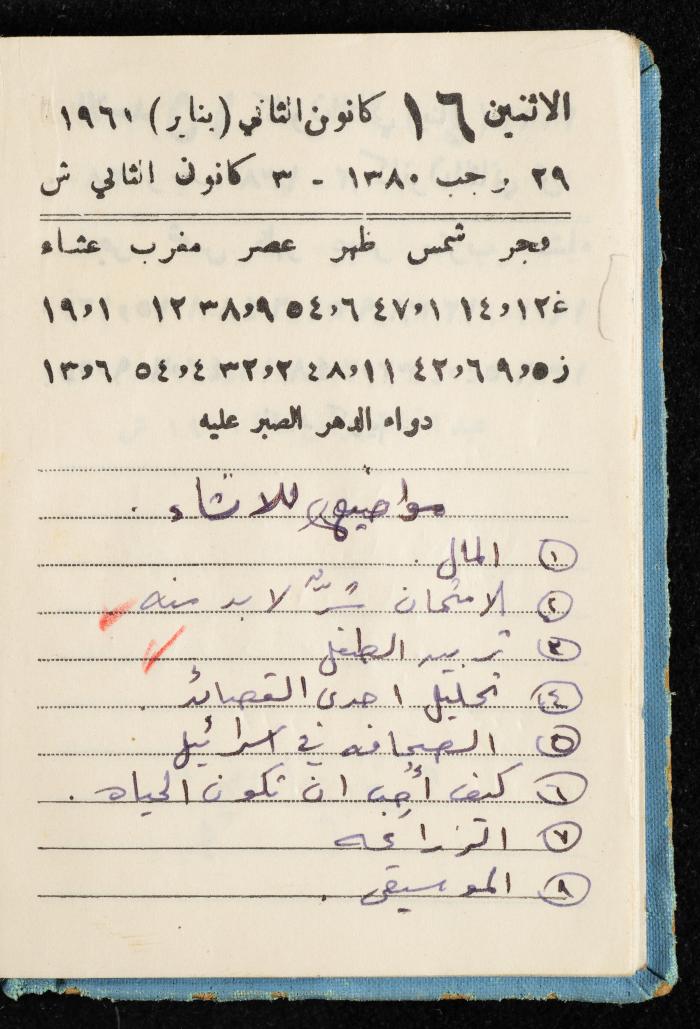 الاثنين ١٦ كانون الثاني (يناير) ١٩٦١
٢٩ رجب ١٣٨٠ - ٣ كانون الثاني ش
فجر شمس ظهر عصر مغرب عشاء
غ ١٢و١٤ ١و٤٧ ٦و٥٤ ٩و٣٨ ١٢ ١و١٩
ز ٥و٩ ٦و٤٢ ١١و٤٨ ٢و٣٢ ٤و٥٤ ٦و١٣
دواه الدهر الصبر عليه
مواضيع للانشاء .
١ المال .
٢ الامتحان شرٌّ لا بد منه
٣ تربيه الطفل
٤ تحليل احدى القصائد .
٥ الصحافه في اسرائيل
٦ كيف أُحِب ان تكون الحياه .
٧ الزراعه
٨ الموسيقى .